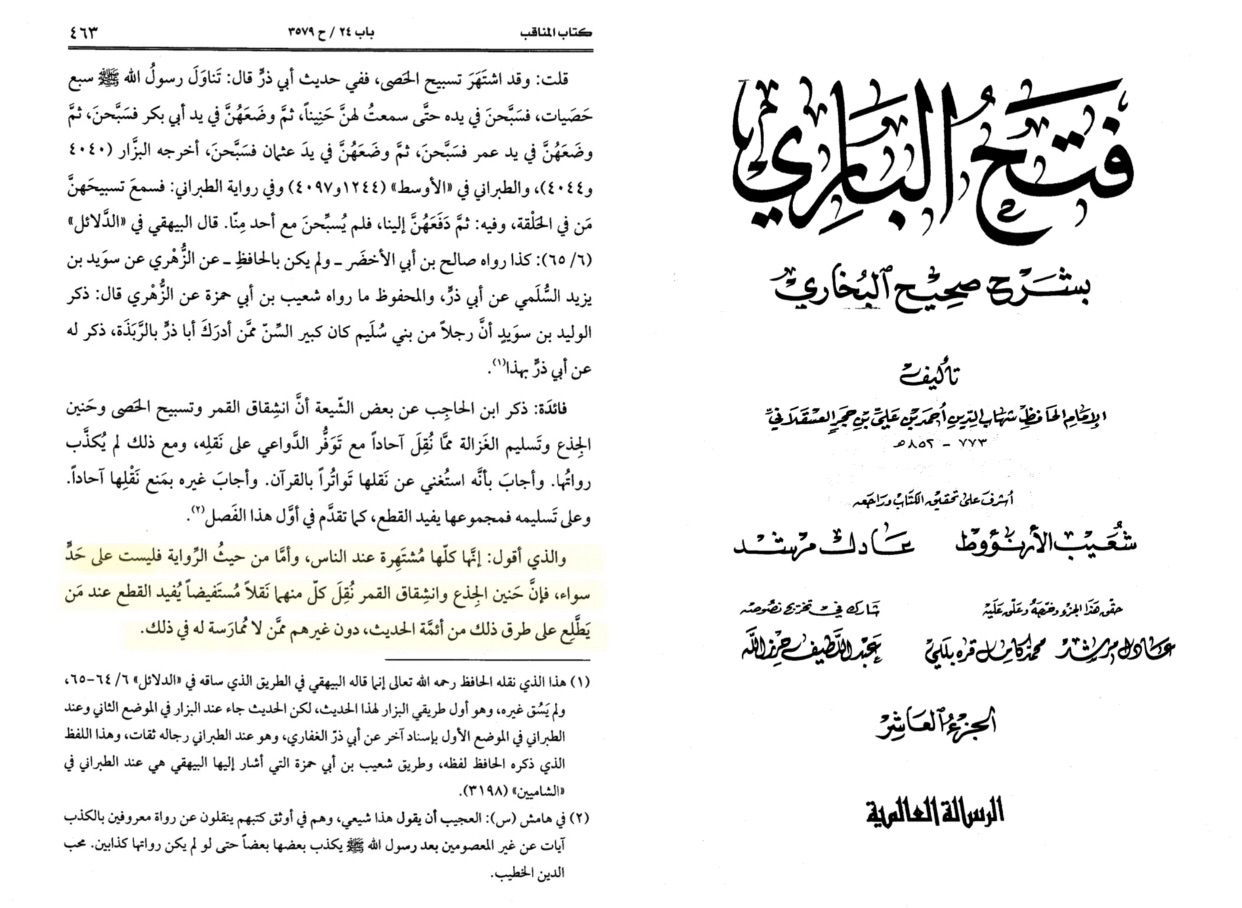 كتاب المناقب
باب ٢٤ / ح ٣٥٧٩
٤٦٣
قلت: وقد اشتَهَرَ تسبيح الحَصى، ففي حديث أبي ذرٍّ قال: تَناوَلَ رسولُ الله ﷺ سبع
حَصَيات، فسَبَّحنَ في يده حتَّى سمعتُ لهنَّ حَنِيناً، ثمَّ وضَعَهُنَّ في يد أبي بكر فسَبَّحنَ، ثمَّ
وضَعَهُنَّ في يد عمر فسَبَّحنَ، ثمَّ وضَعَهُنَّ في يدَ عثمان فسَبَّحنَ، أخرجه البزَّار (٤٠٤٠
و٤٠٤٤)، والطبراني في «الأوسط» (١٢٤٤ و٤٠٩٧) وفي رواية الطبراني: فسمعَ تسبيحَهنَّ
مَن في الحَلْقة، وفيه: ثمَّ دَفَعَهُنَّ إلينا، فلم يُسبِّحنَ مع أحد مِنّا. قال البيهقي في «الدَّلائل»
(٦/ ٦٥): كذا رواه صالح بن أبي الأخضَر ــ ولم يكن بالحافظِ ــ عن الزُّهْري عن سوَيد بن
يزيد السُّلَمي عن أبي ذرٍّ، والمحفوظ ما رواه شعيب بن أبي حمزة عن الزُّهْري قال: ذكر
الوليد بن سوَيدٍ أنَّ رجلاً من بني سُلَيم كان كبير السِّنّ ممَّن أدرَكَ أبا ذرٍّ بالرَّبَذَة، ذكر له
عن أبي ذرٍّ بهذا(١).
فائدة: ذكر ابن الحاجِب عن بعض الشّيعة أنَّ انشِقاق القمر وتسبيح الحَصى وحَنين
الجِذع وتَسليم الغَزالة ممَّا نُقِلَ آحاداً مع تَوَفُّر الدَّواعي على نَقلِه، ومع ذلك لم يُكذَّب
رواتُها. وأجابَ بأنَّه استُغني عن نَقلها تَواتُراً بالقرآن. وأجابَ غيره بمَنع نَقْلِها آحاداً.
وعلى تَسليمه فمجموعها يفيد القطع، كما تقدَّم في أوَّل هذا الفَصل(٢).
والذي أقول: إنَّها كلّها مُشتَهِرة عند الناس، وأمَّا من حيثُ الرِّواية فليست على حَدٍّ
سواء، فإنَّ حَنين الجِذع وانشِقاق القمر نُقِلَ كلّ منهما نَقلاً مُستَفيضاً يُفيد القطع عند مَن
يَطَّلِع على طرق ذلك من أئمَّة الحديث، دون غيرهم ممَّن لا مُمارَسة له في ذلك.
(١) هذا الذي نقله الحافظ رحمه الله تعالى إنما قاله البيهقي في الطريق الذي ساقه في «الدلائل» ٦/ ٦٤-٦٥،
ولم يَسُق غيره، وهو أول طريقي البزار لهذا الحديث، لكن الحديث جاء عند البزار في الموضع الثاني وعند
الطبراني في الموضع الأول بإسناد آخر عن أبي ذرّ الغفاري، وهو عند الطبراني رجاله ثقات، وهذا اللفظ
الذي ذكره الحافظ لفظه، وطريق شعيب بن أبي حمزة التي أشار إليها البيهقي هي عند الطبراني في
«الشاميين» (٣١٩٨).
(٢) في هامش (س): العجيب أن يقول هذا شيعي، وهم في أوثق كتبهم ينقلون عن رواة معروفين بالكذب
آيات عن غير المعصومين بعد رسول الله ﷺ يكذب بعضها بعضاً حتى لو لم يكن رواتها كذابين. محب
الدين الخطيب.
فتح الباري
بشرح صحيح البخاري
تأليف
الإمام الحافظ شهاب الدين أحمد بن علي بن حجر العسقلاني
٧٧٣ - ٨٥٢ هـ
أشرف على تحقيق الكتاب وراجعه
شعيب الأرنؤوط عادل مرشد
حقق هذا الجزء وخرجه وعلق عليه
شارك في تخريج نصوصه
عادل مرشد محمد كامل قره بللي
عبد اللطيف حرز الله
الجزء العاشر
الرسالة العالمية